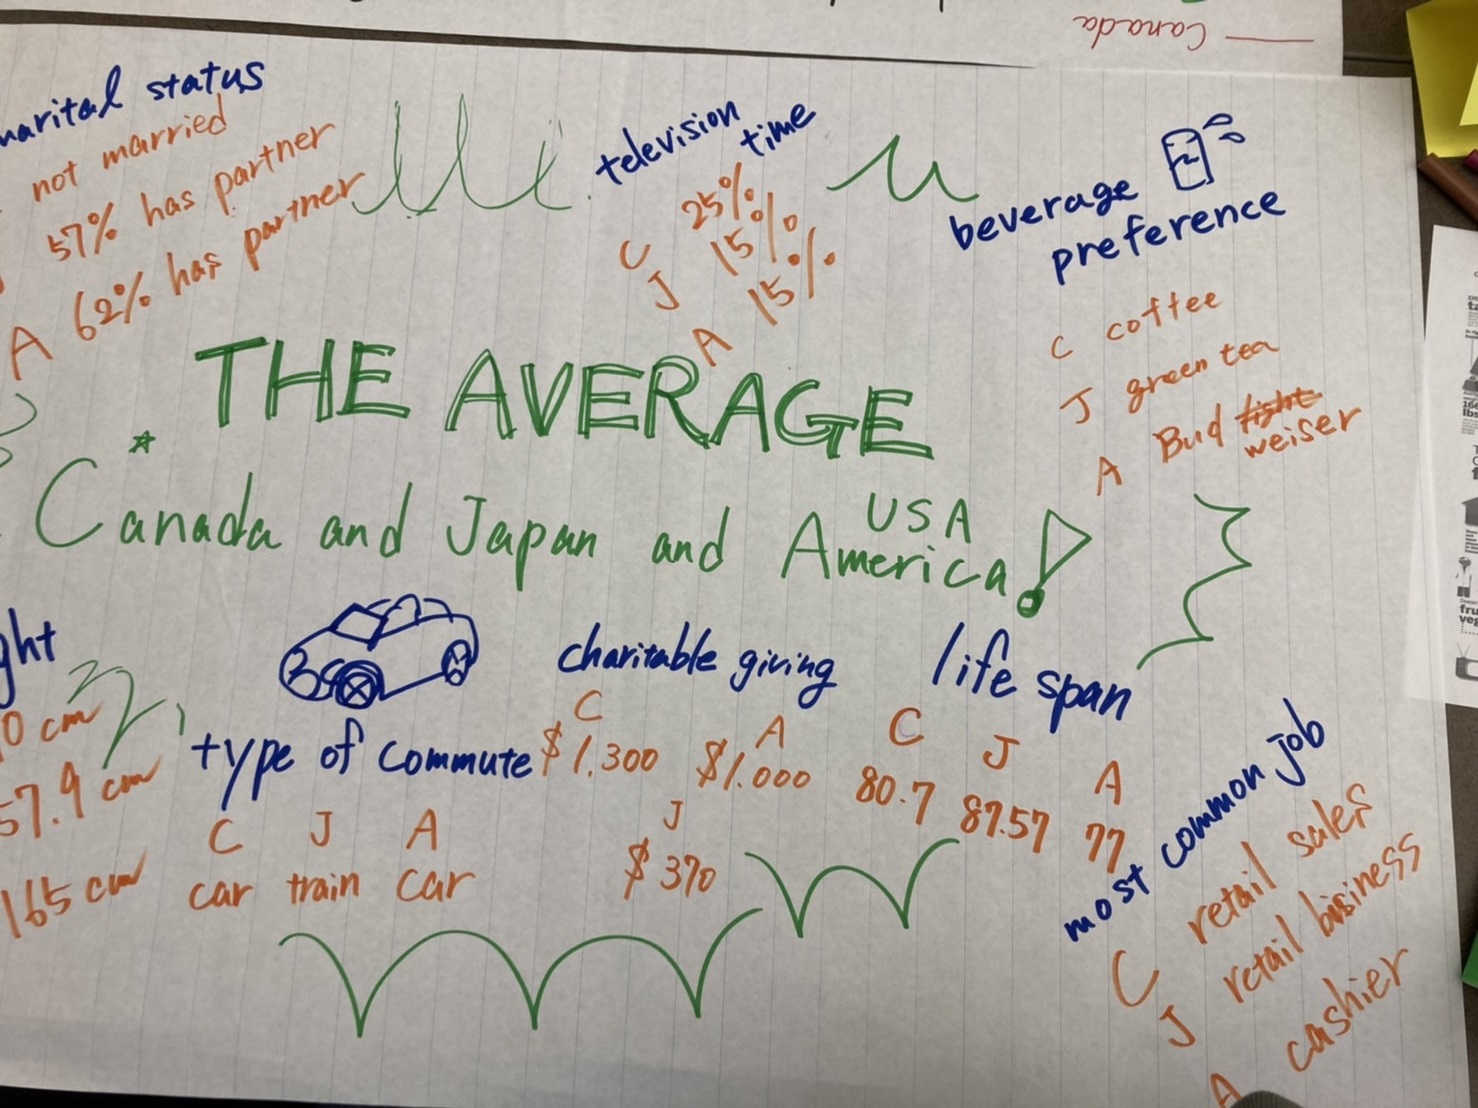 Canada
marital status
not married
57% has partner
A 62% has partner
television
time
C 25%
J 15%
A 15%
beverage
preference
C coffee
J green tea
A Bud light
weiser
THE AVERAGE
Canada and Japan and America!
USA
ght
0 cm
57.9 cm
165 cm
type of commute
C J A
car train car
charitable giving
C
$1.300
A
$1.000
J
$370
life span
C J A
80.7 87.57 77
most common job
C retail sales
J retail business
A cashier